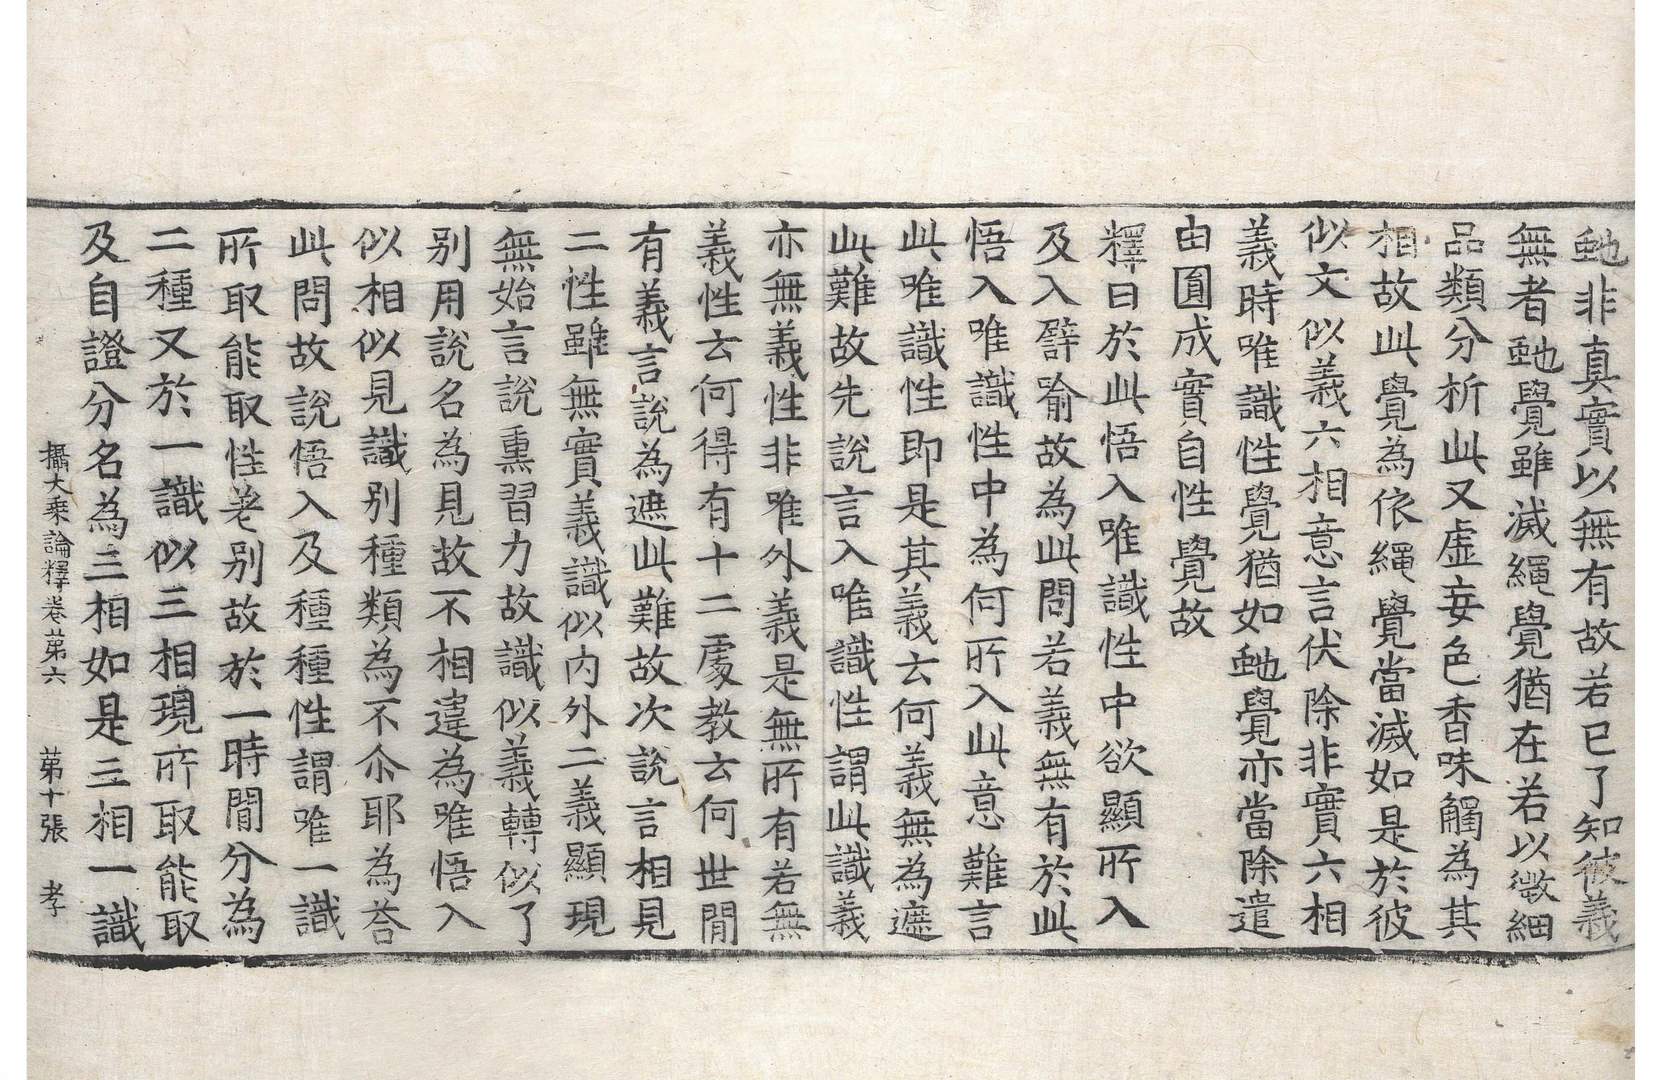 虵非真實以無有故若已了知彼義
無者虵覺雖滅繩覺猶在若以微細
品類分析此又虛妄色香味觸為其
相故此覺為依繩覺當滅如是於彼
似文似義六相意言伏除非實六相
義時唯識性覺猶如虵覺亦當除遣
由圎成實自性覺故
釋曰於此悟入唯識性中欲顯所入
及入譬喻故為此問若義無有於此
悟入唯識性中為何所入此意難言
此唯識性即是其義云何義無為遮
此難故先說言入唯識性謂此識義
亦無義性非唯外義是無所有若無
義性云何得有十二處教云何世間
有義言說為遮此難故次說言相見
二性雖無實義識似內外二義顯現
無始言說熏習力故識似義轉似了
別用說名為見故不相違為唯悟入
似相似見識別種類為不尒耶為荅
此問故說悟入及種種性謂唯一識
所取能取性差別故於一時間分為
二種又於一識似三相現所取能取
及自證分名為三相如是三相一識
攝大乘論釋卷苐六 苐十張 孝